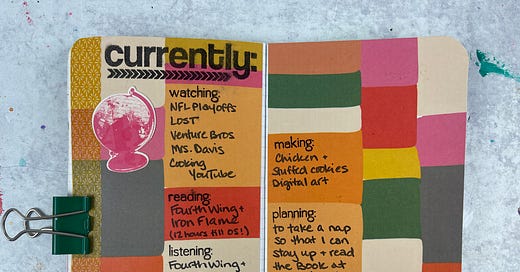 currently:
watching:
NFL Playoffs
LOST
Venture Bros
Ms. Davis
Cooking
YouTube
reading:
Fourth Wing +
Iron Flame
(12 hours till OS!)
listening:
Fourth Wing +
making:
Chicken +
Stuffed cookies
Digital art
planning:
to take a nap
so that I can
stay up + read
the Book at